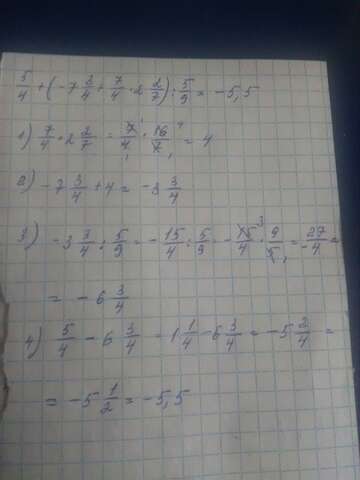 5/4 + (-7 3/4 + 7/4 · 2 2/7) : 5/9 = -5,5
1) 7/4 · 2 2/7 = 7/4 · 16/7 = 4
2) -7 3/4 + 4 = -3 3/4
3) -3 3/4 : 5/9 = -15/4 : 5/9 = -15/4 · 9/5 = 27/-4 =
= -6 3/4
4) 5/4 - 6 3/4 = 1 1/4 - 6 3/4 = -5 2/4 =
= -5 1/2 = -5,5